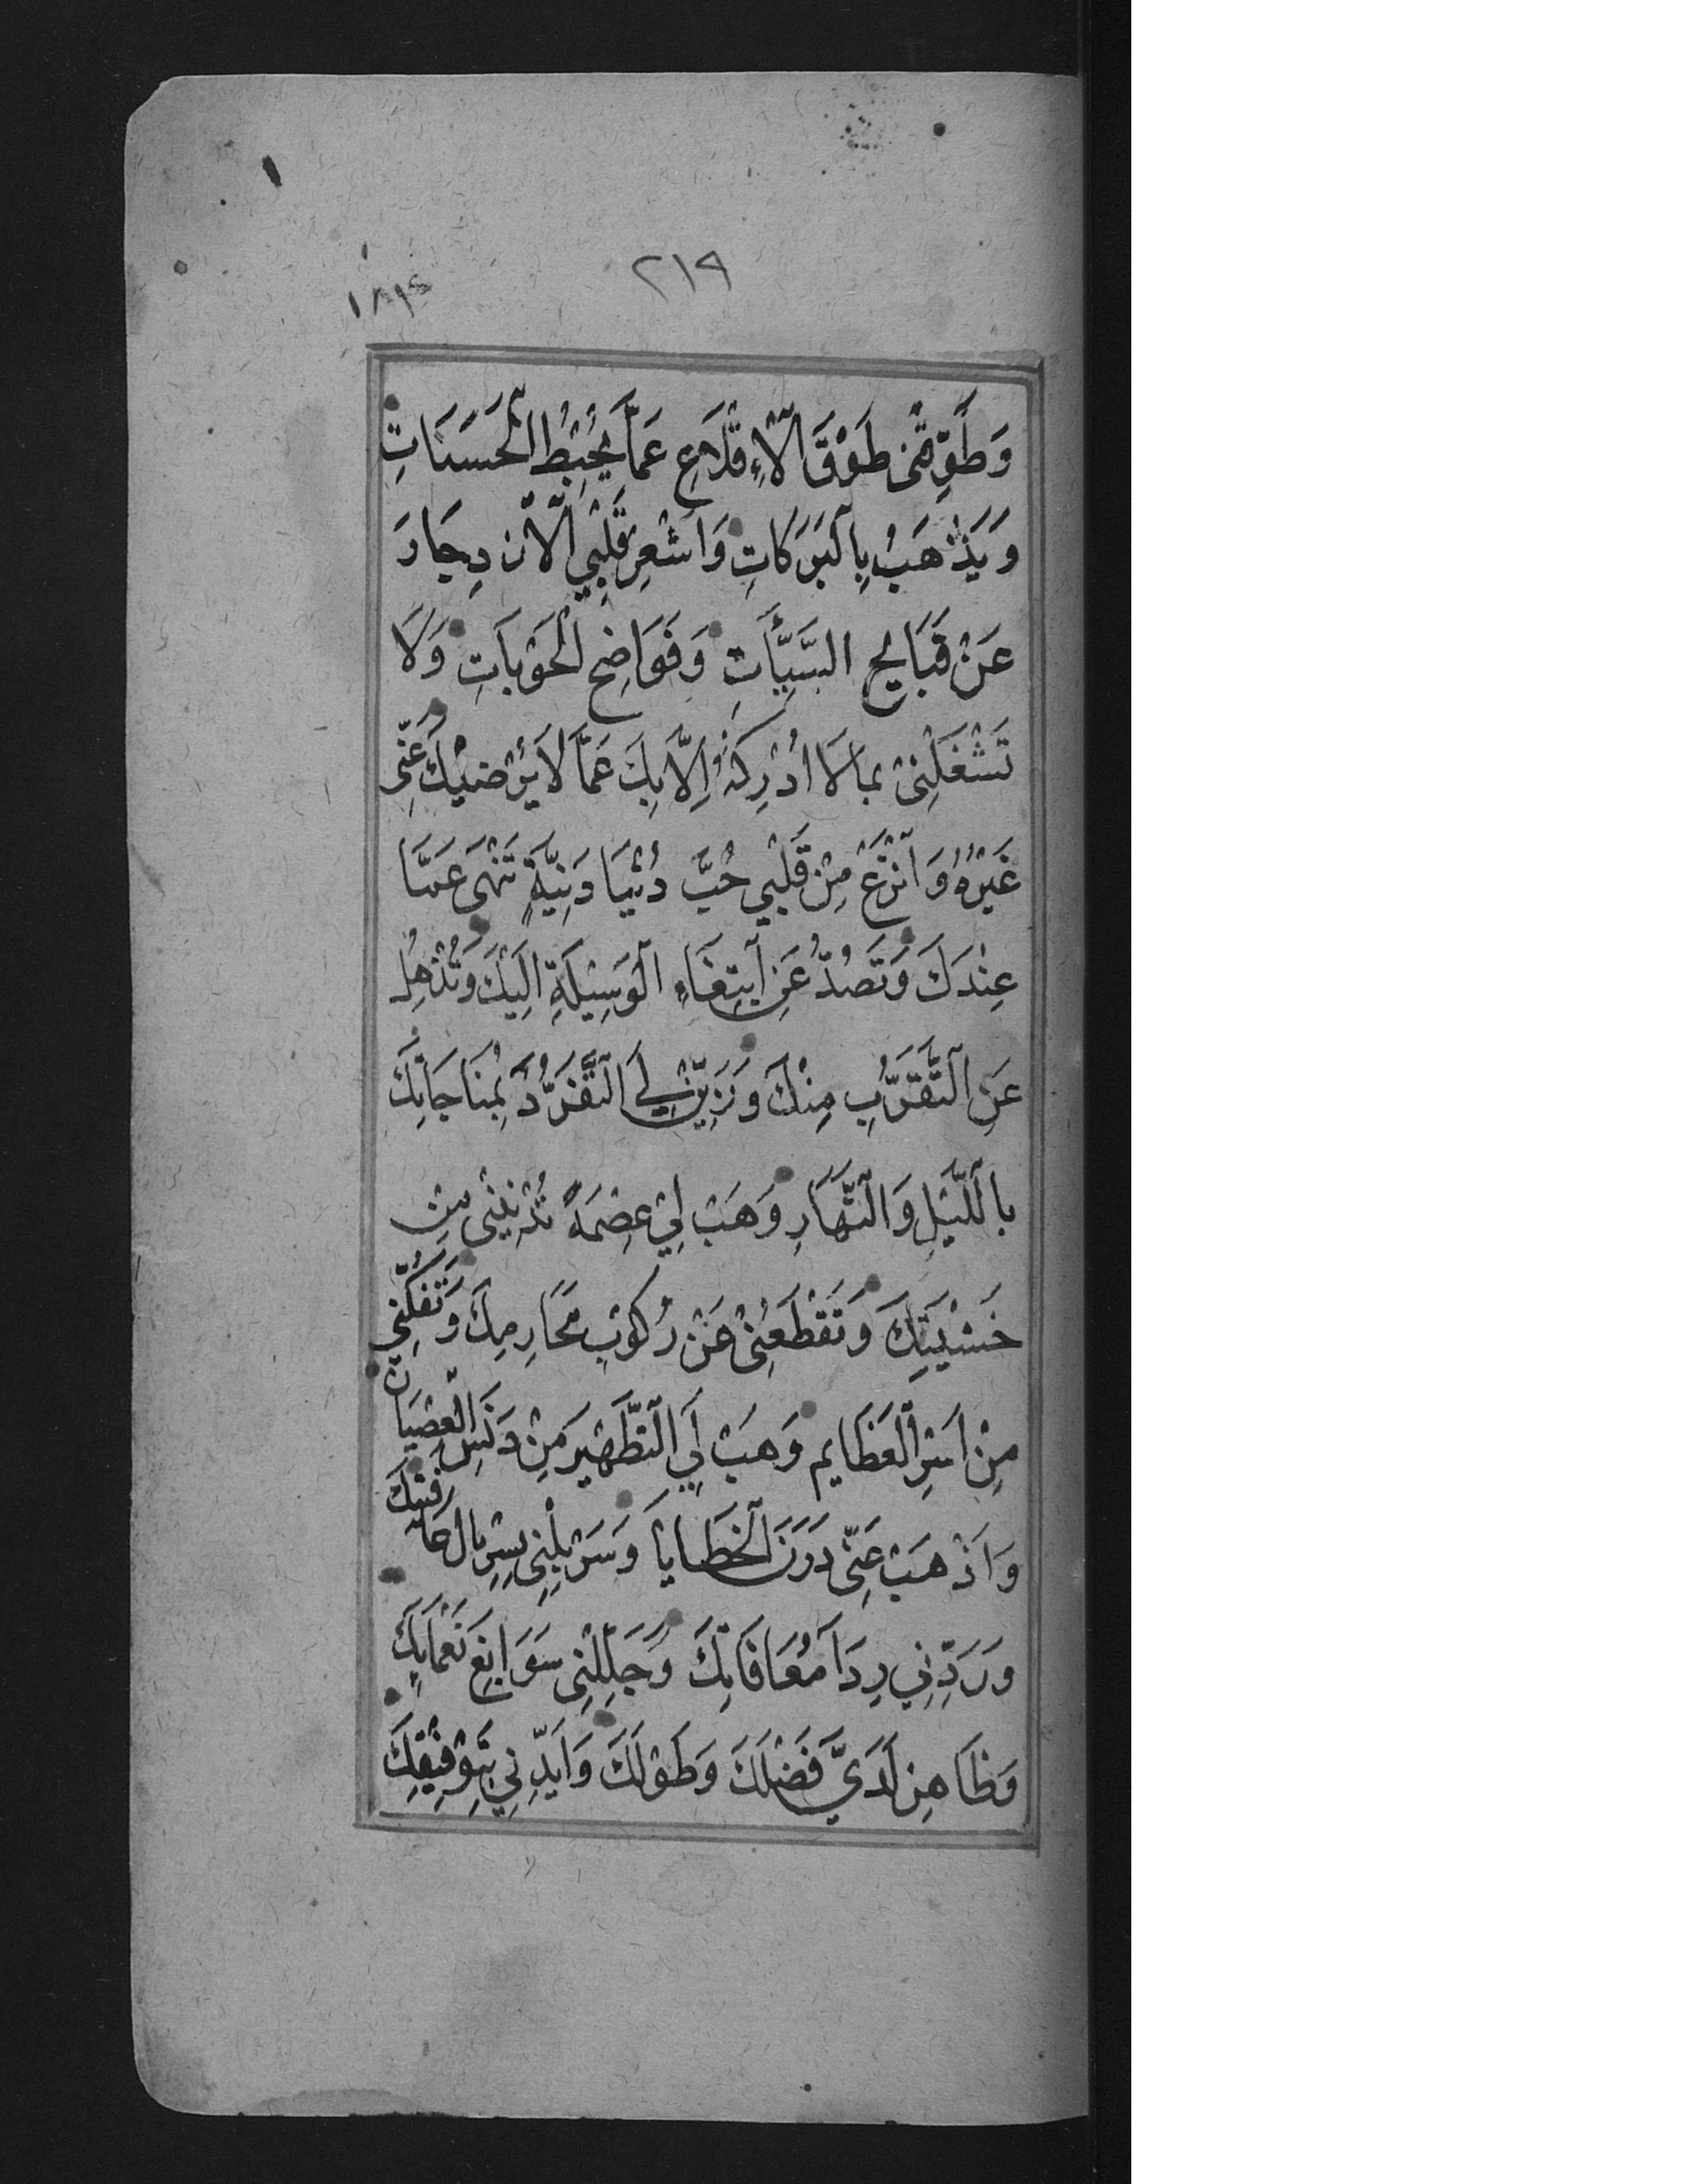 ٢١٩
١٨١٤
وَطَوِّقْنِي طَوْقَ الْاِقْلَاعِ عَمَّا يُحْبِطُ الْحَسَنَاتِ
وَيَذْهَبُ بِالْبَرَكَاتِ وَاَشْعِرْ قَلْبِي الْاِزْدِجَارَ
عَنْ قَبَايِحِ السَّيِّأَتِ وَفَوَاضِحِ الْحَوْبَاتِ وَلَا
تَشْغَلْنِي بِمَا لَا اُدْرِكُهُ اِلَّا بِكَ عَمَّا لَا يُرْضِيْكَ عَنِّي
غَيْرُهُ وَانْزِعْ مِنْ قَلْبِي حُبَّ دُنْيَا دَنِيَّةٍ تَنْهَى عَمَّا
عِنْدَكَ وَتَصُدُّ عَنِ ابْتِغَاءِ الْوَسِيْلَةِ اِلَيْكَ وَتُذْهِلُ
عَنِ التَّقَرُّبِ مِنْكَ وَزَيِّنْ لِيَ التَّفَرُّدَ بِمُنَاجَاتِكَ
بِاللَّيْلِ وَالنَّهَارِ وَهَبْ لِي عِصْمَةً تُدْنِيْنِي مِنْ
خَشْيَتِكَ وَتَقْطَعُنِي عَنْ رُكُوبِ مَحَارِمِكَ وَتَفُكُّنِي
مِنْ اَسْرِ الْعَظَايِمِ وَهَبْ لِيَ التَّطْهِيْرَ مِنْ دَنَسِ الْعِصْيَانِ
وَاَذْهِبْ عَنِّي دَرَنَ الْخَطَايَا وَسَرْبِلْنِي بِسِرْبَالِ عَافِيَتِكَ
وَرَدِّنِي رِدَاَ مُعَافَاتِكَ وَجَلِّلْنِي سَوَابِغَ نَعْمَايِكَ
وَظَاهِرْ لَدَيَّ فَضْلَكَ وَطَوْلَكَ وَاَيِّدْنِي بِتَوْفِيْقِكَ